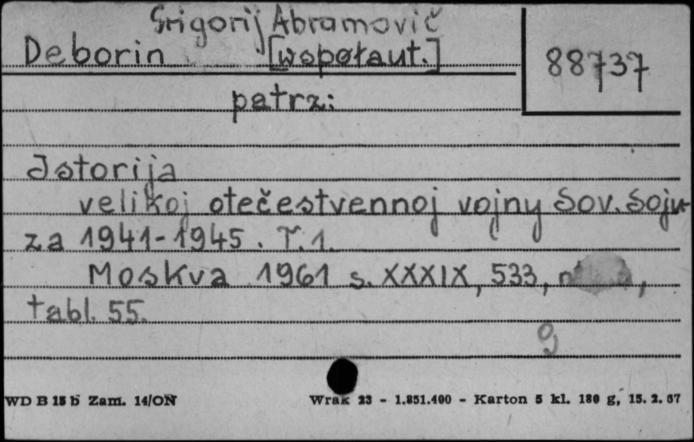 Grigorij Abramovič
Deborin [wspołaut.]
88737
patrz:
Istorija
velikoj otečestvennoj vojny Sov. Soju-
za 1941-1945. T.1.
Moskva 1961 s. XXXIX, 533,
tabl. 55.
g
WD B 15 b Zam. 14/ON Wrak 23 - 1.851.400 - Karton 5 kl. 180 g, 15. 2. 67